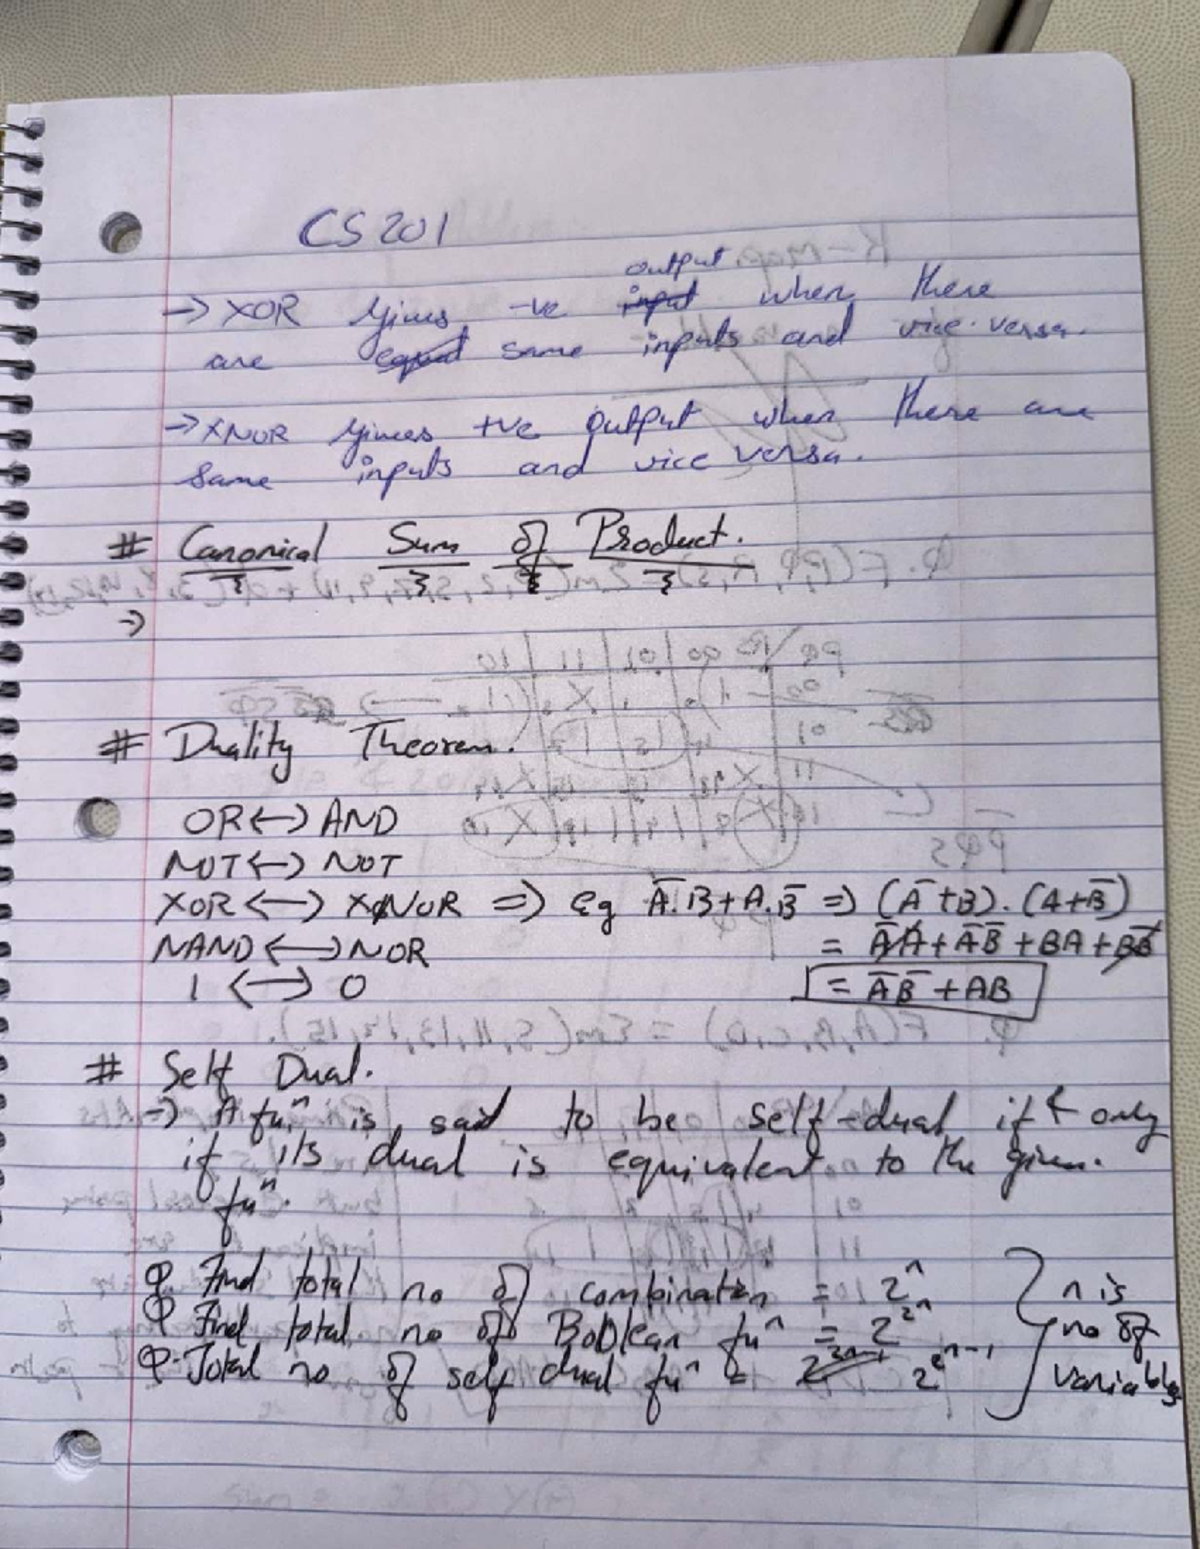 CS 201
output
→ XOR gives -ve input when there
are equal same inputs and vice versa.
→ XNOR gives +ve output when there are
same inputs and vice versa.
# Canonical Sum of Product.
→
# Duality Theorem.
OR ↔ AND
NOT ↔ NOT
XOR ↔ XNOR ⇒ eg A̅.B+A.B̅ ⇒ (A̅+B).(A+B̅)
NAND ↔ NOR = A̅A + A̅B̅ + BA + BB̅
1 ↔ 0 = A̅B̅ + AB
# Self Dual.
→ A fuⁿ is said to be self-dual if & only
if its dual is equivalent to the given.
fuⁿ.
Q. Find total no of combination = 2ⁿ } n is
Q Find total no of Boolean fuⁿ = 2^2^n no of
Q. Total no of self dual fuⁿ = 2^2^n-1 variables